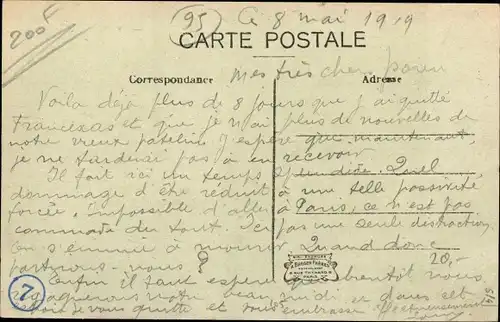 200F
(95) Ce 8 mai 1919
CARTE POSTALE
Correspondance
Adresse
Mes très chers
Voila déjà plus de 8 jours que j'ai quitté
et que je n'ai plus de nouvelles de
notre vieux patelin. J'espère que maintenant
je ne tarderai pas à en recevoir
Il fait ici un temps splendide. Quel
dommage d'être réduit à une telle passivité
forcée, impossible d'aller à Paris, ce n'est pas
commode du tout. Ici pas une seule distraction
On s'ennuie à mourir. Quand donc
partirons-nous ?
20,-
Enfin il faut espérer que bientôt nous
notre beau midi et dans cet
je vous quitte et vous embrasse affectueusement
7